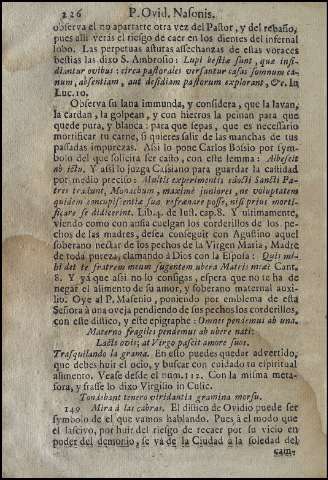 226 P. Ovid. Nasonis.
observa el no apartarte otra vez del Pastor, y del rebaño,
pues alli verás el riesgo de caer en los dientes del infernal
lobo. Las perpetuas astutas assechanzas de estas voraces
bestias las dixo S. Ambrosio: Lupi bestiæ sunt, quæ insi-
diantur ovibus: circa pastorales versantur casas somnum ca-
num, absentiam, aut desidiam pastorum explorant, &c. in
Luc. 10.
Observa su lana immunda, y considera, que la lavan,
la cardan, la golpean, y con hierros la peinan para que
quede pura, y blanca: para que sepas, que es necessario
mortificar tu carne, si quieres salir de las manchas de tus
passadas impurezas. Assi lo pone Carlos Bossio por sym-
bolo del que solicita ser casto, con este lemma: Albescit
ab ictu. Y assi lo juzga Cassiano para guardar la castidad
por medio preciso: Multis experimentis edocti Sancti Pa-
tres tradunt, Monachum, maximè juniores, ne voluptatem
quidem concupiscentiæ suæ refrænare posse, nisi prius morti-
ficare se didicerint. Lib. 4. de Inst. cap. 8. Y ultimamente,
viendo como con ansia cuelgan los corderillos de los pe-
chos de las madres, desea conseguir con Agustino aquel
soberano nectar de los pechos de la Virgen Maria, Madre
de toda pureza, clamando à Dios con la Esposa: Quis mi-
hi det te fratrem meum sugentem ubera Matris meæ? Cant.
8. Y yà que assi no lo consigas, espera que no te ha de
negar el alimento de su amor, y soberano maternal auxi-
lio. Oye al P. Masenio, poniendo por emblema de esta
Señora à una oveja pendiendo de sus pechos los corderillos,
con este distico, y este epigraphe: Omnes pendemus ab una.
Materno fragiles pendemus ab ubere nati:
Lacte ovis; at Virgo pascit amore suos.
Trasquilando la grama. En esto puedes quedar advertido,
que debes huir el ocio, y buscar con cuidado tu espiritual
alimento. Vease desde el num. 112. Con la misma meta-
fora, y frasse lo dixo Virgilio in Culic.
Tondebant tenero viridantia gramina morsu.
140 Mira à las cabras. El distico de Ovidio puede ser
symbolo de el que vamos hablando. Pues à el modo que
el lascivo, por huir del riesgo de recaer por su vicio en
poder del demonio, se và de la Ciudad à la soledad del
cam-